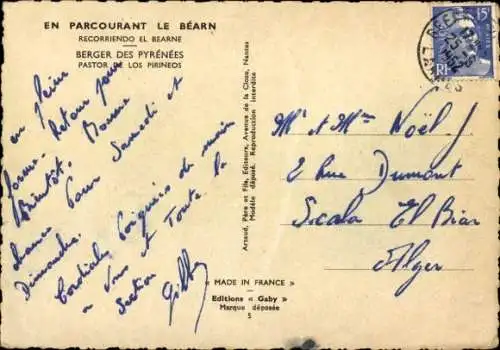 EN PARCOURANT LE BÉARN
RECORRIENDO EL BEARNE
BERGER DES PYRÉNÉES
PASTOR DE LOS PIRINEOS
en pleine
forme. Retour pour
Bientôt. Bonne
chance pour Samedi et
Dimanche.
Cordiales poignées de main
a Vous et Toute la
Section
Gilbb
Artaud, Père et Fils, Editeurs, Avenue de la Close, Nantes
Modèle déposé. Reproduction interdite
« MADE IN FRANCE »
Editions « Gaby »
Marque déposée
5
15F
RF
LANDES
Mr et Mme Noël J
2 Rue Dumont
Scala El Biar
Alger